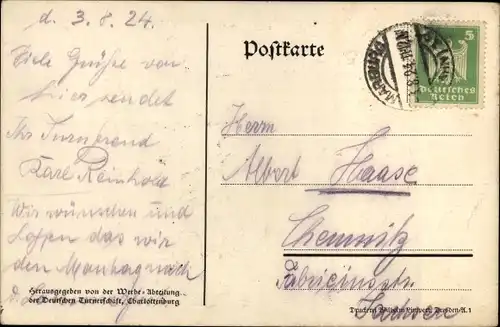 d. 3.8.24.
Viele Grüße von
hier sendet
Ihr Turnfreund
Karl Reinhold
Wir wünschen und
hoffen das wir
den
Herausgegeben von der Werbe-Abteilung
der Deutschen Turnerschaft, Charlottenburg
Postkarte
5
Deutsches
Reich
Herrn
Albert Haase
Chemnitz
Fabriciusstr.
Sachsen
Dresden-A. 1